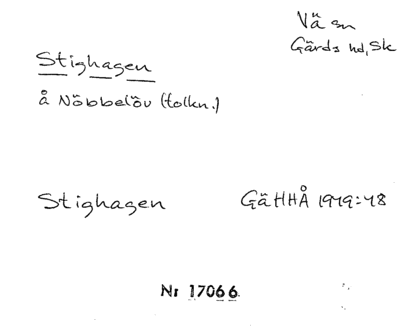 Vä sn
Gärds hd, Sk
Stighagen
å Nöbbelöv (tolkn.)
Stighagen GäHHÅ 1949:48
Nr 17066